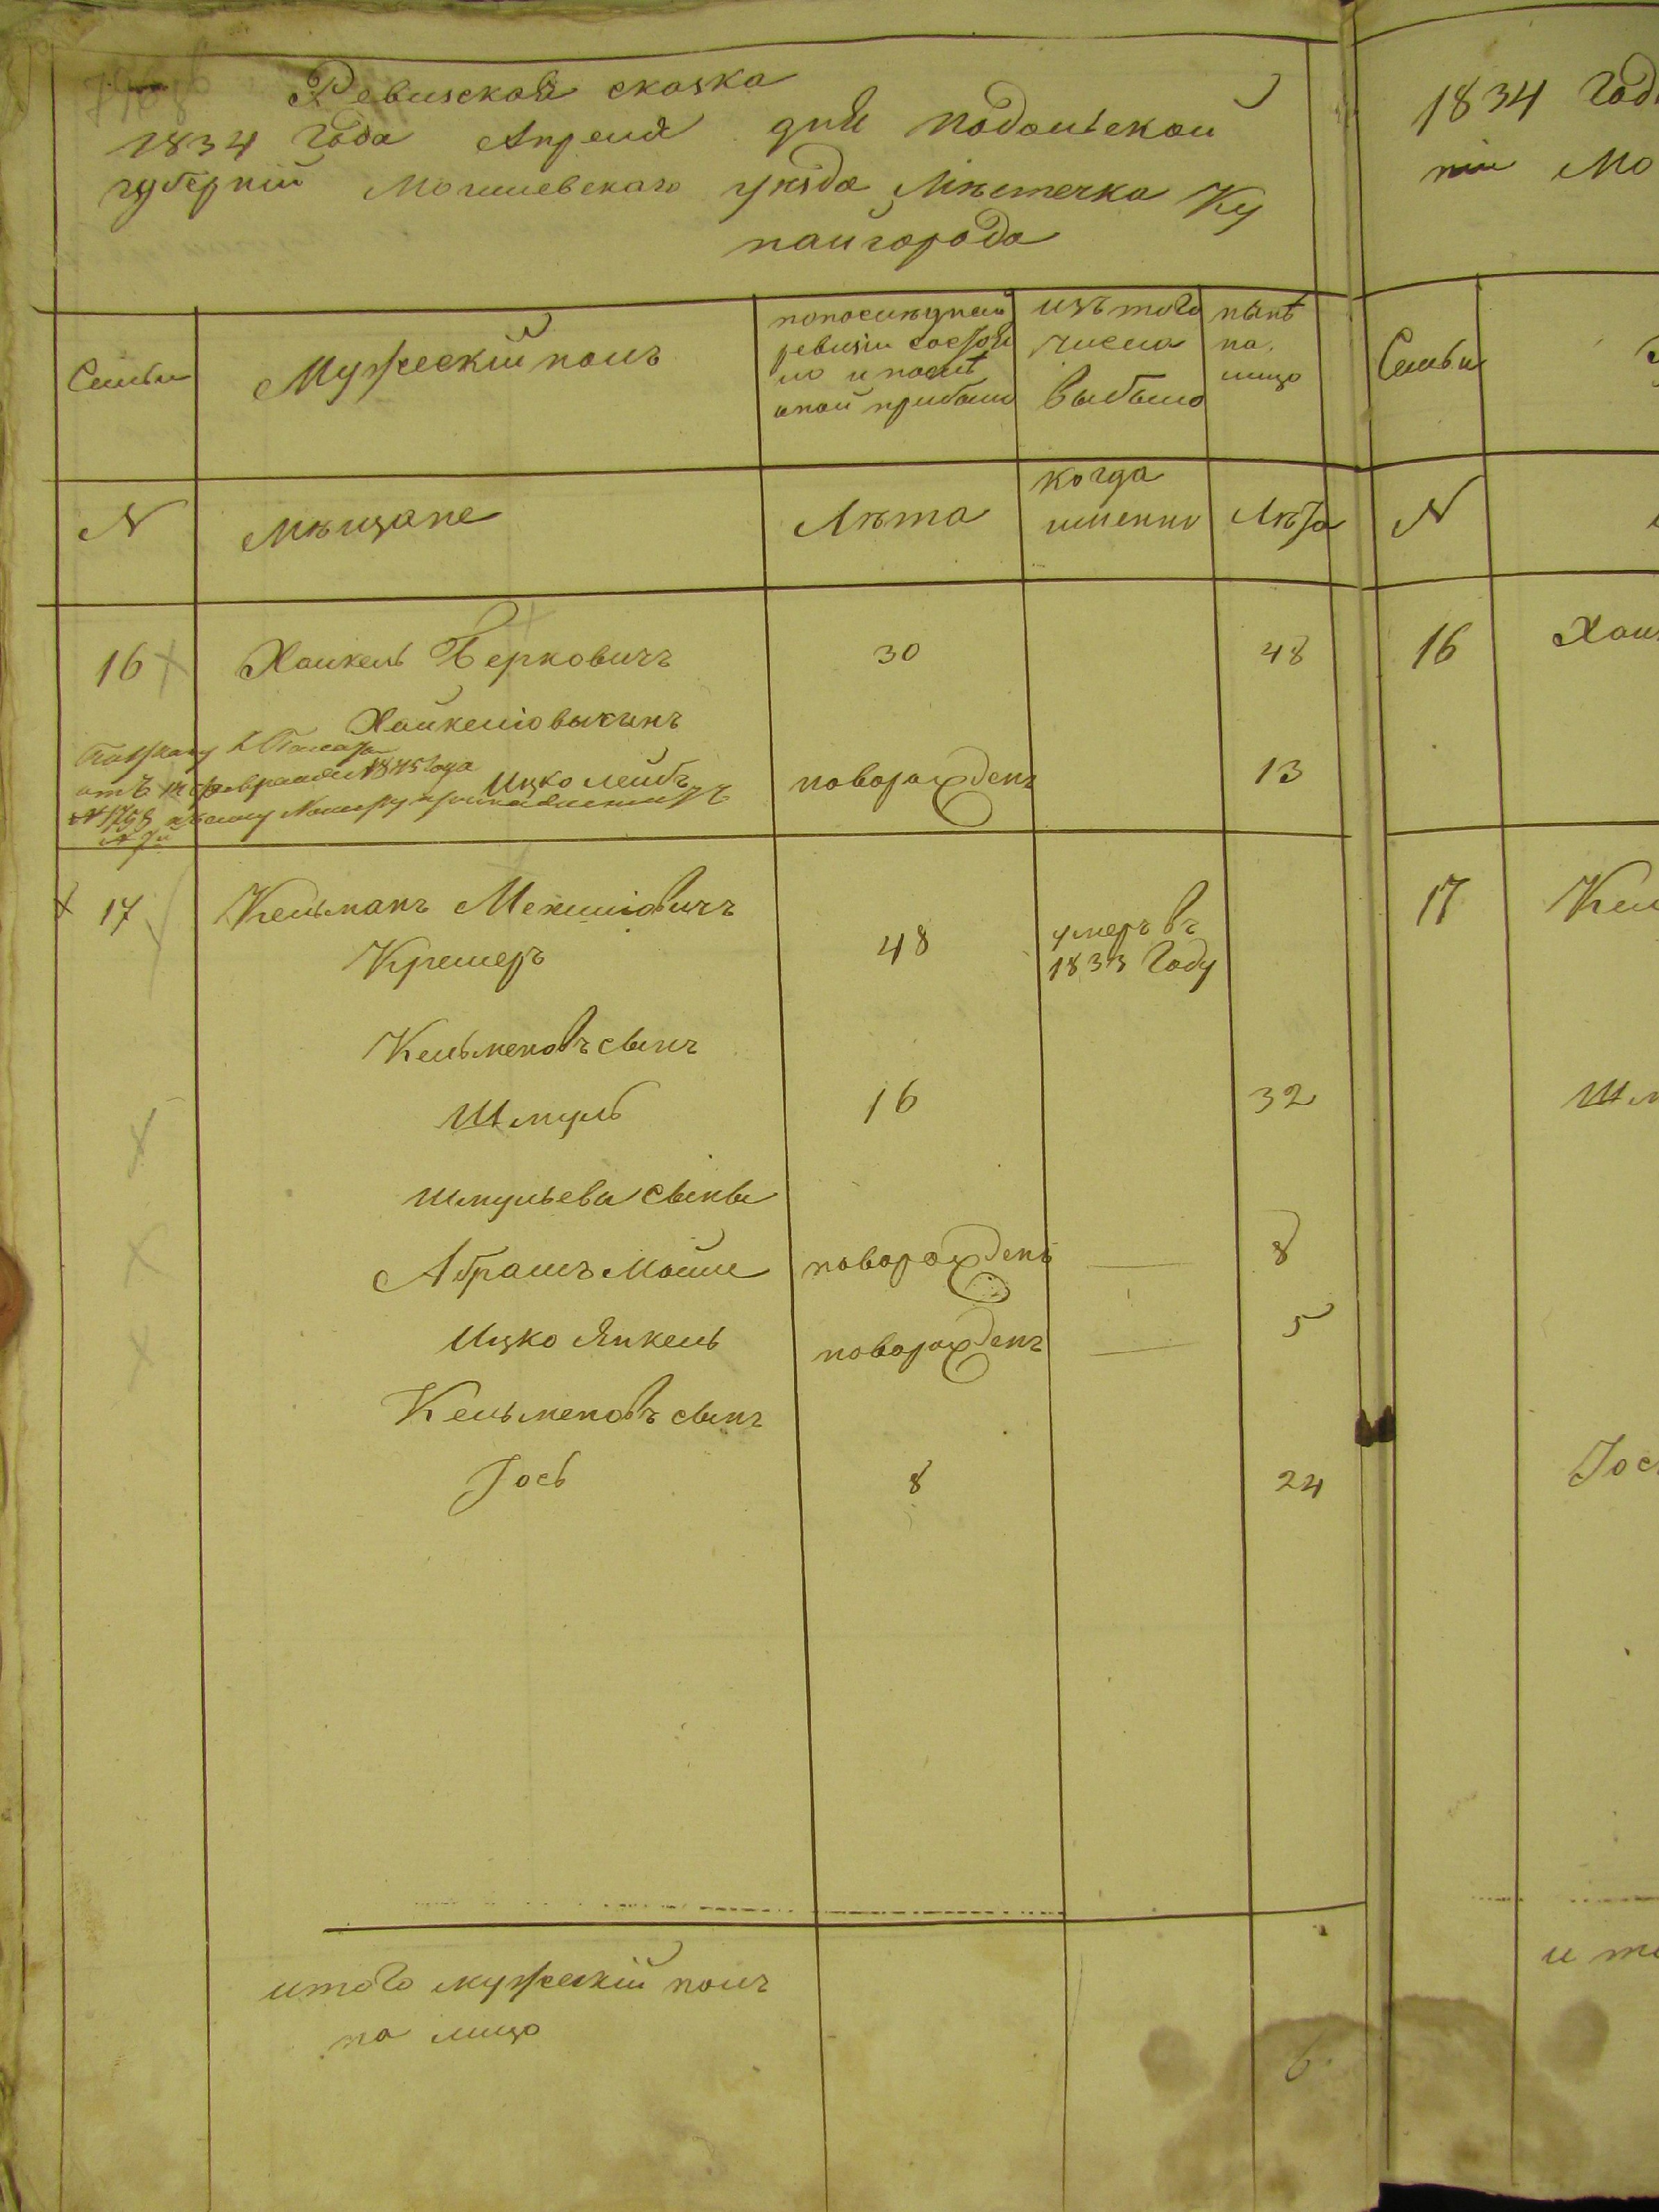 Ревизская сказка
1834 Года Апреля дня Подольской
губернiй Могилевскаго уѣзда Мѣстечка Ку
пайгорода
Семьи
Мужескiй полъ
попослѣдней
ревизiи состоя
ло и послѣ
оной прибыло
изъ того
числа
выбыло
нынѣ
на
лицо
N
Мѣщане
Лѣта
когда
именно
Лѣта
16 Хаикель Берковичъ 30 48
Хайкелiовъ сынъ
Ицко Лейбъ новорожденъ 13
17 Кельманъ Мехилiовичъ
Кремеръ 48 умеръ въ
1833 Году
Кельмановъ сынъ
Шмуль 16 32
Шмульева сыны
Абрамъ Моше новорожденъ 8
Ицко Янкель новорожденъ 5
Кельменовъ сынъ
Iось 8 24
итого мужескiй полъ
на лицо 6
1834 Год
нiи Мо
Семьи
N
16 Хаи
17 Кел
Шм
Iос
и то